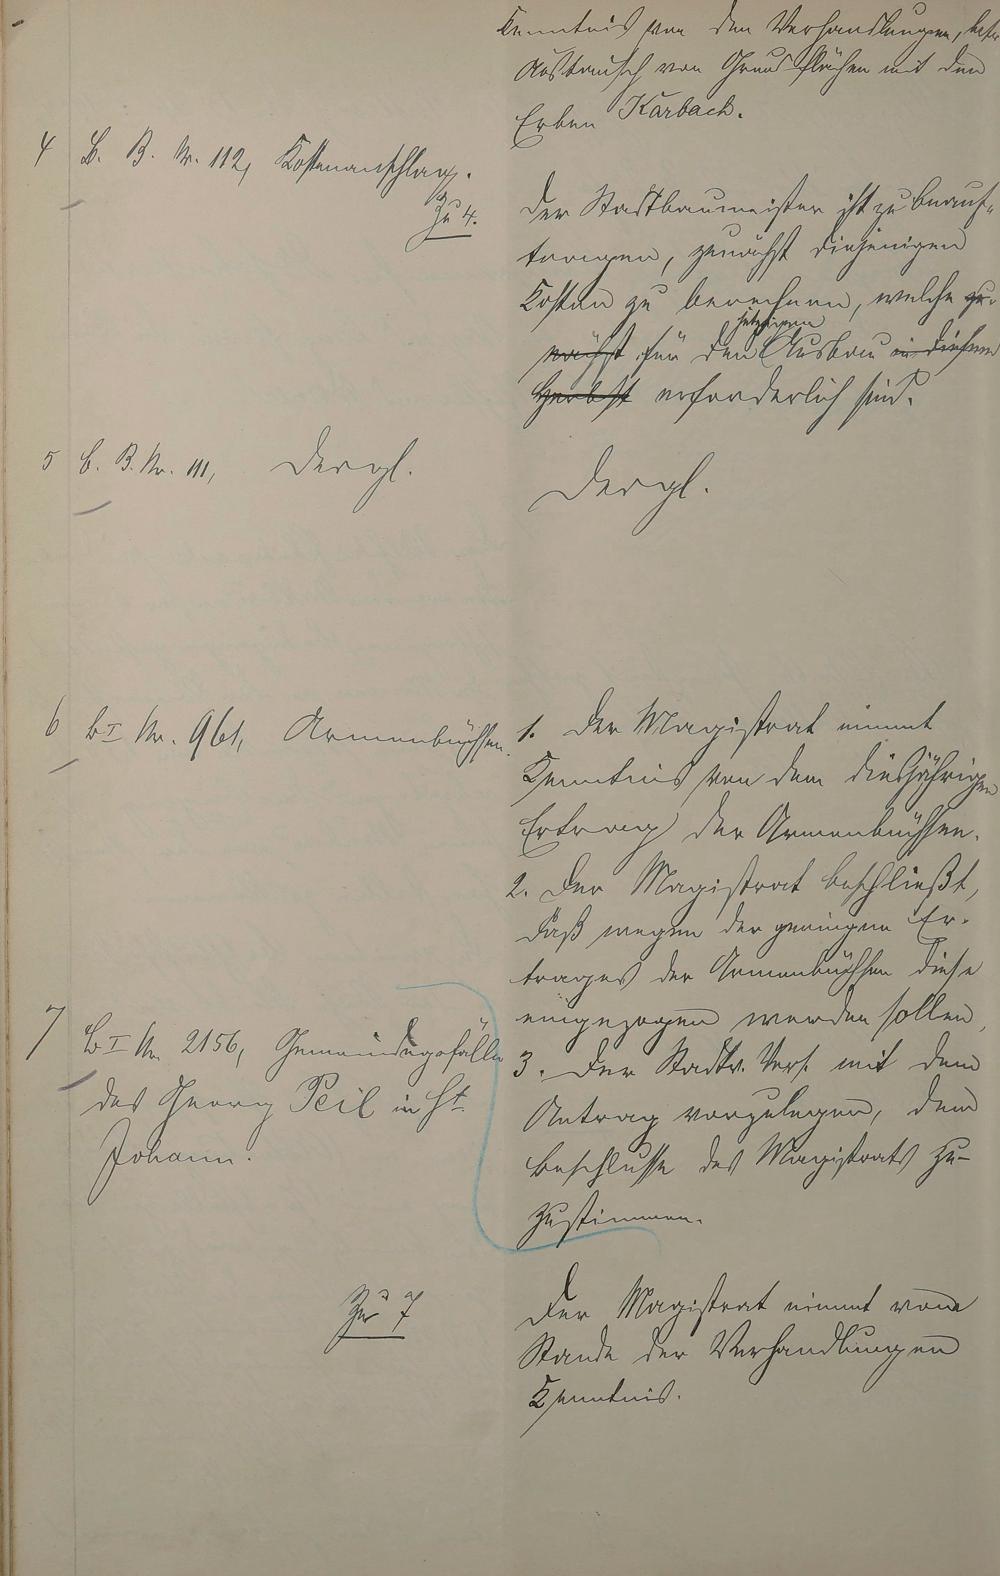 Kenntnis von den Verhandlungen, betr.
Austausch von Grundflächen mit den
Erben Karbach.
4 C. B. Nr. 112, Kostenanschlag.
Zu 4.
Der Stadtbaumeister ist zu beauf-
tragen, zunächst diejenigen
Kosten zu berechnen, welche zu-
nächst für den jetzigen Ausbau in diesem
Herbst erforderlich sind.
5 C. B. Nr. 111, Dergl.
Dergl.
6 C I Nr. 961, Armenbüchsen.
1. Der Magistrat nimmt
Kenntnis von dem diesjährigen
Ertrag der Armenbüchsen.
2. Der Magistrat beschließt,
daß wegen der geringen Er-
trages der Armenbüchsen diese
eingezogen werden sollen,
3. Der Stadtv. Vers. mit dem
Antrag vorzulegen, dem
Beschlusse des Magistrats zu-
zustimmen.
7 C I Nr. 2156, Gemeindegefälle
des Georg Peil in St.
Johann.
Zu 7
Der Magistrat nimmt vom
Stande der Verhandlungen
Kenntnis.